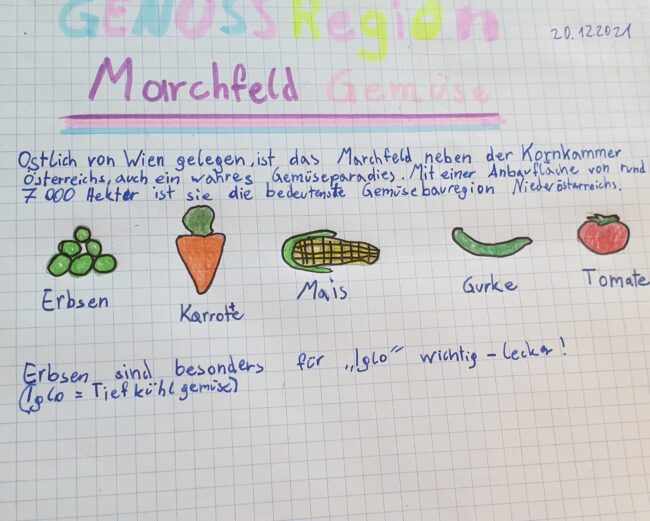 GENUSS Region
20.12.2021
Marchfeld Gemüse
Östlich von Wien gelegen, ist das Marchfeld neben der Kornkammer
Österreichs, auch ein wahres Gemüseparadies. Mit einer Anbaufläche von rund
7 000 Hektar ist sie die bedeutenste Gemüsebauregion Niederösterreichs.
Erbsen
Karrotte
Mais
Gurke
Tomate
Erbsen sind besonders für „Iglo" wichtig - Lecker!
(Iglo = Tiefkühlgemüse)